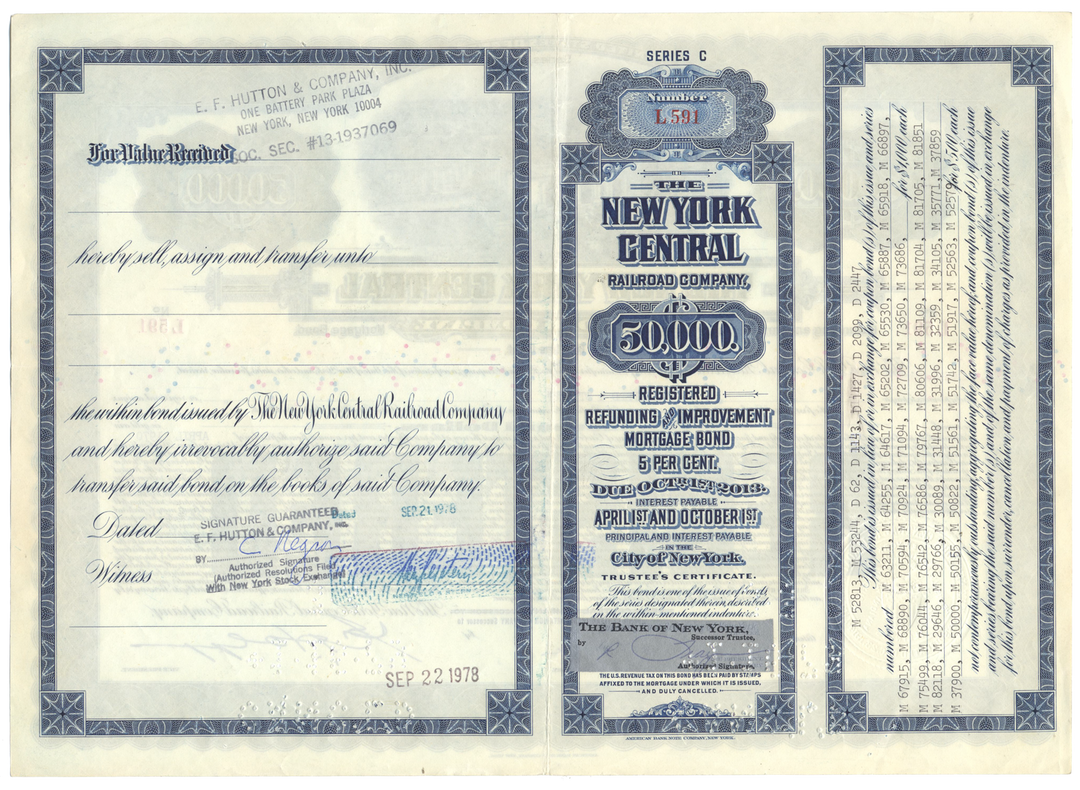 E. F. HUTTON & COMPANY, INC.
ONE BATTERY PARK PLAZA
NEW YORK, NEW YORK 10004
SOC. SEC. #13-1937069
For Value Received
hereby sell, assign and transfer unto
the within bond issued by The New York Central Railroad Company
and hereby irrevocably authorize said Company to
transfer said bond on the books of said Company.
Dated
Dated SEP 21 1978
SIGNATURE GUARANTEED
E. F. HUTTON & COMPANY, INC.
BY
Authorized Signature
(Authorized Resolutions Filed
With New York Stock Exchange)
Witness
SEP 22 1978
SERIES C
Number
L 591
THE
NEW YORK
CENTRAL
RAILROAD COMPANY,
50,000.
REGISTERED
REFUNDING AND IMPROVEMENT
MORTGAGE BOND
5 PER CENT.
DUE OCT. 1ST, 2013.
INTEREST PAYABLE
APRIL 1ST AND OCTOBER 1ST
PRINCIPAL AND INTEREST PAYABLE
IN THE
City of New York.
TRUSTEE'S CERTIFICATE.
This bond is one of the issue of bonds
of the series designated therein, described
in the within-mentioned indenture.
THE BANK OF NEW YORK,
Successor Trustee,
by
Authorized Signature.
THE U.S. REVENUE TAX ON THIS BOND HAS BEEN PAID BY STAMPS
AFFIXED TO THE MORTGAGE UNDER WHICH IT IS ISSUED,
AND DULY CANCELLED.
AMERICAN BANK NOTE COMPANY, NEW YORK.
M 52813, M 53244, D 62, D 1143, D 1427, D 2099, D 2447
This bond is issued in lieu of or in exchange for coupon bond(s) of this issue and series
numbered M 63211, M 64255, M 64617, M 65202, M 65530, M 65887, M 65918, M 66897,
M 67915, M 68890, M 70594, M 70924, M 71094, M 72709, M 73650, M 73686, for $1,000 each
M 75499, M 76044, M 76542, M 76586, M 79767, M 80606, M 81109, M 81704, M 81705, M 81851
M 82118, M 29646, M 29766, M 30089, M 31448, M 31996, M 32359, M 34105, M 35771, M 37859
M 37900, M 50000, M 50155, M 50822, M 51561, M 51742, M 51917, M 52563, M 52579, for $500 each
not contemporaneously outstanding, aggregating the face value hereof, and coupon bond(s) of this issue
and series bearing the said number(s) and of the same denomination(s) shall be issued in exchange
for this bond upon surrender, cancellation, and payment of charges as provided in the indenture.